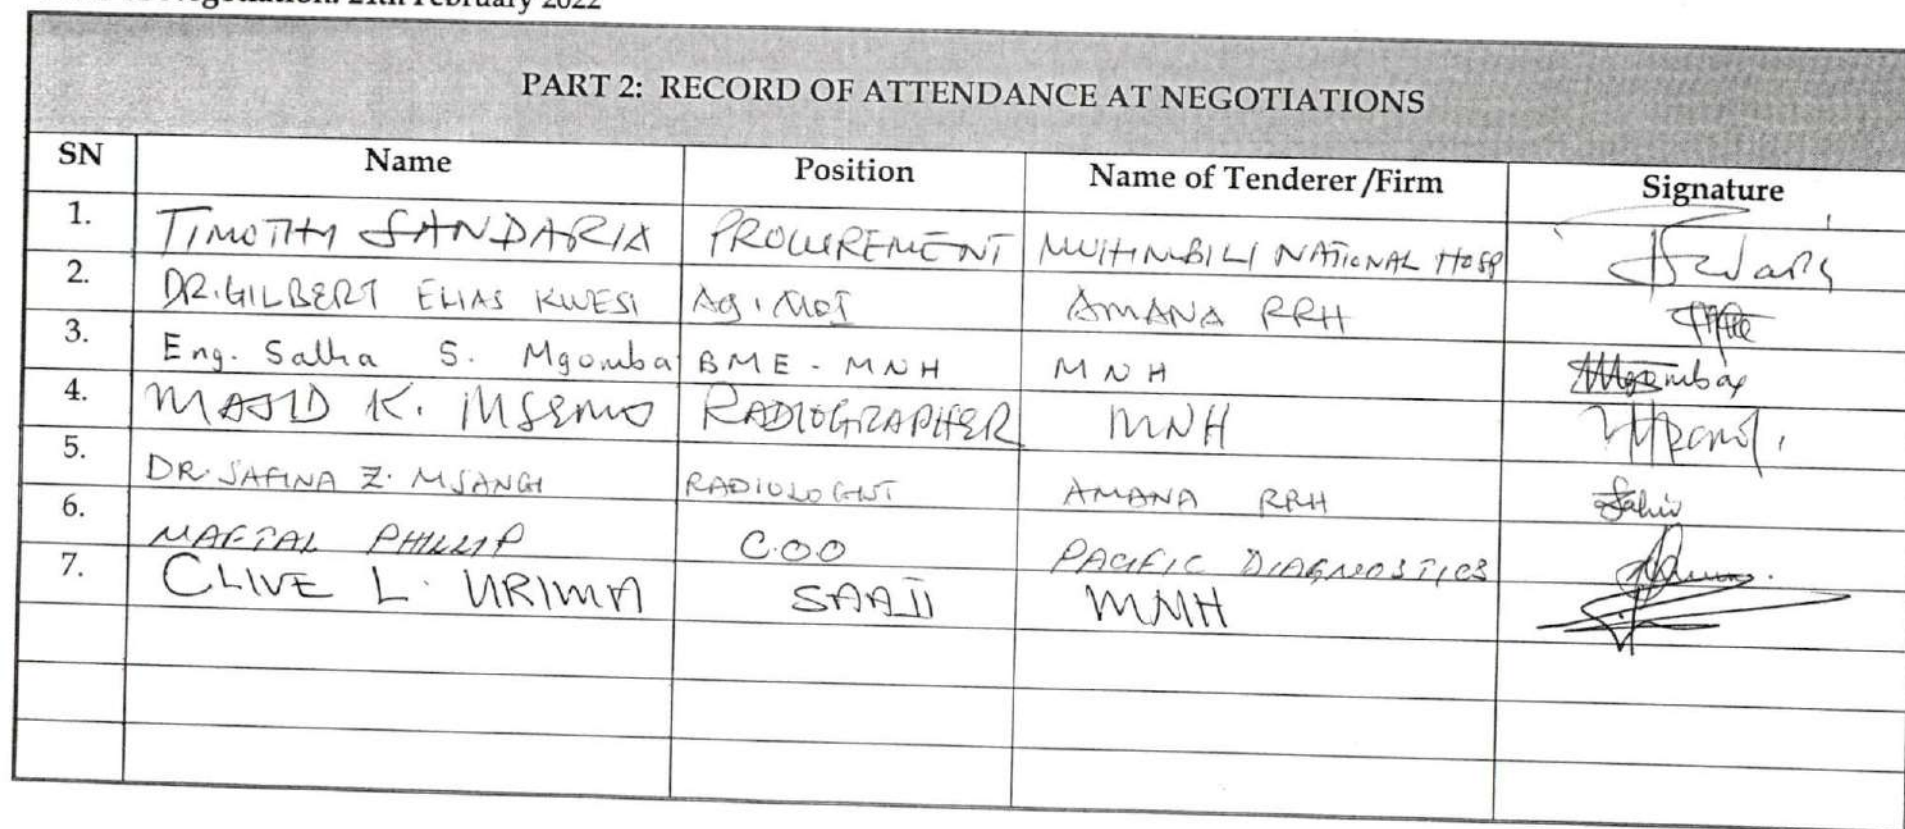 Negotiation: 21th February 2022
PART 2: RECORD OF ATTENDANCE AT NEGOTIATIONS
SN Name Position Name of Tenderer /Firm Signature
1. TIMOTHY SANDARIA PROCUREMENT MUHIMBILI NATIONAL HOSP
2. DR. GILBERT ELIAS KWESI AG. MOI AMANA RRH
3. Eng. Salha S. Mgomba BME - MNH MNH Mgombax
4. MAJID K. MSEMO RADIOGRAPHER MNH
5. DR. SAFINA Z. MSANGI RADIOLOGIST AMANA RRH
6. MAFTAL PHILLIP C.O.O PACIFIC DIAGNOSTICS
7. CLIVE L. URIMA SAAII MNH